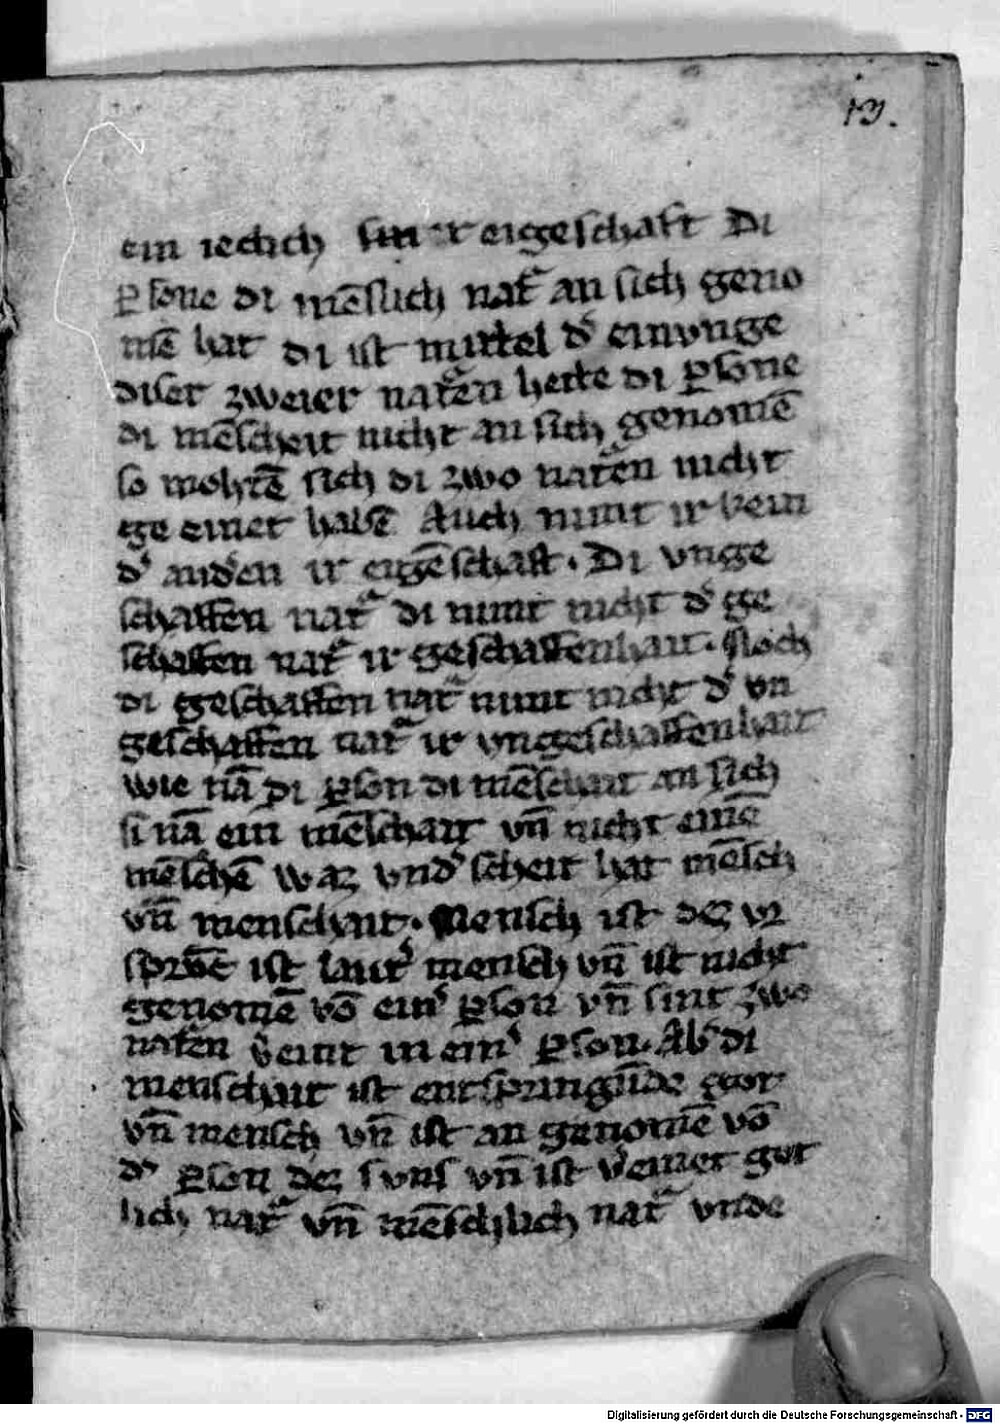 13.
ein iechch sin eigeschaft Di
ꝑsone di mēslich nat᷑ an sich geno
mē hat di ist mittel d᷑ einunge
diser zweier nat᷑en hette di ꝑsone
di mēscheit nicht an sich genomē
so mohtē sich di zwo nat᷑en nicht
ge einet habē Auch nimt ir kein
d᷑ and᷑en ir eigēschaft · Di unge
schaffen nat᷑ di nimt nicht d᷑ ge
schaffen nat᷑ ir geschaffenhait · Noch
di geschaffen nat᷑ nimt nicht d᷑ vn
geschaffen nat᷑ ir vngeschaffenhait
wie nā di ꝑson di mēschait an sich
si nā ein mēschait vn̄ nicht einē
mēschē waz vnd᷑scheit hat mēsch
vn̄ menschait · Mensch ist dez vr
ist laut᷑ mensch vn̄ ist nicht
genomē vō ein᷑ ꝑson vn̄ sint zwo
nat᷑en v᷑eint in ein᷑ ꝑson · Ab᷑ di
menschait ist entspringūde got
vn̄ mensch vn̄ ist an genomē vō
d᷑ ꝑson dez suns vn̄ ist v᷑einet got
lich nat᷑ vn̄ mēschlich nat᷑ vnde
Digitalisierung gefördert durch die Deutsche Forschungsgemeinschaft - DFG